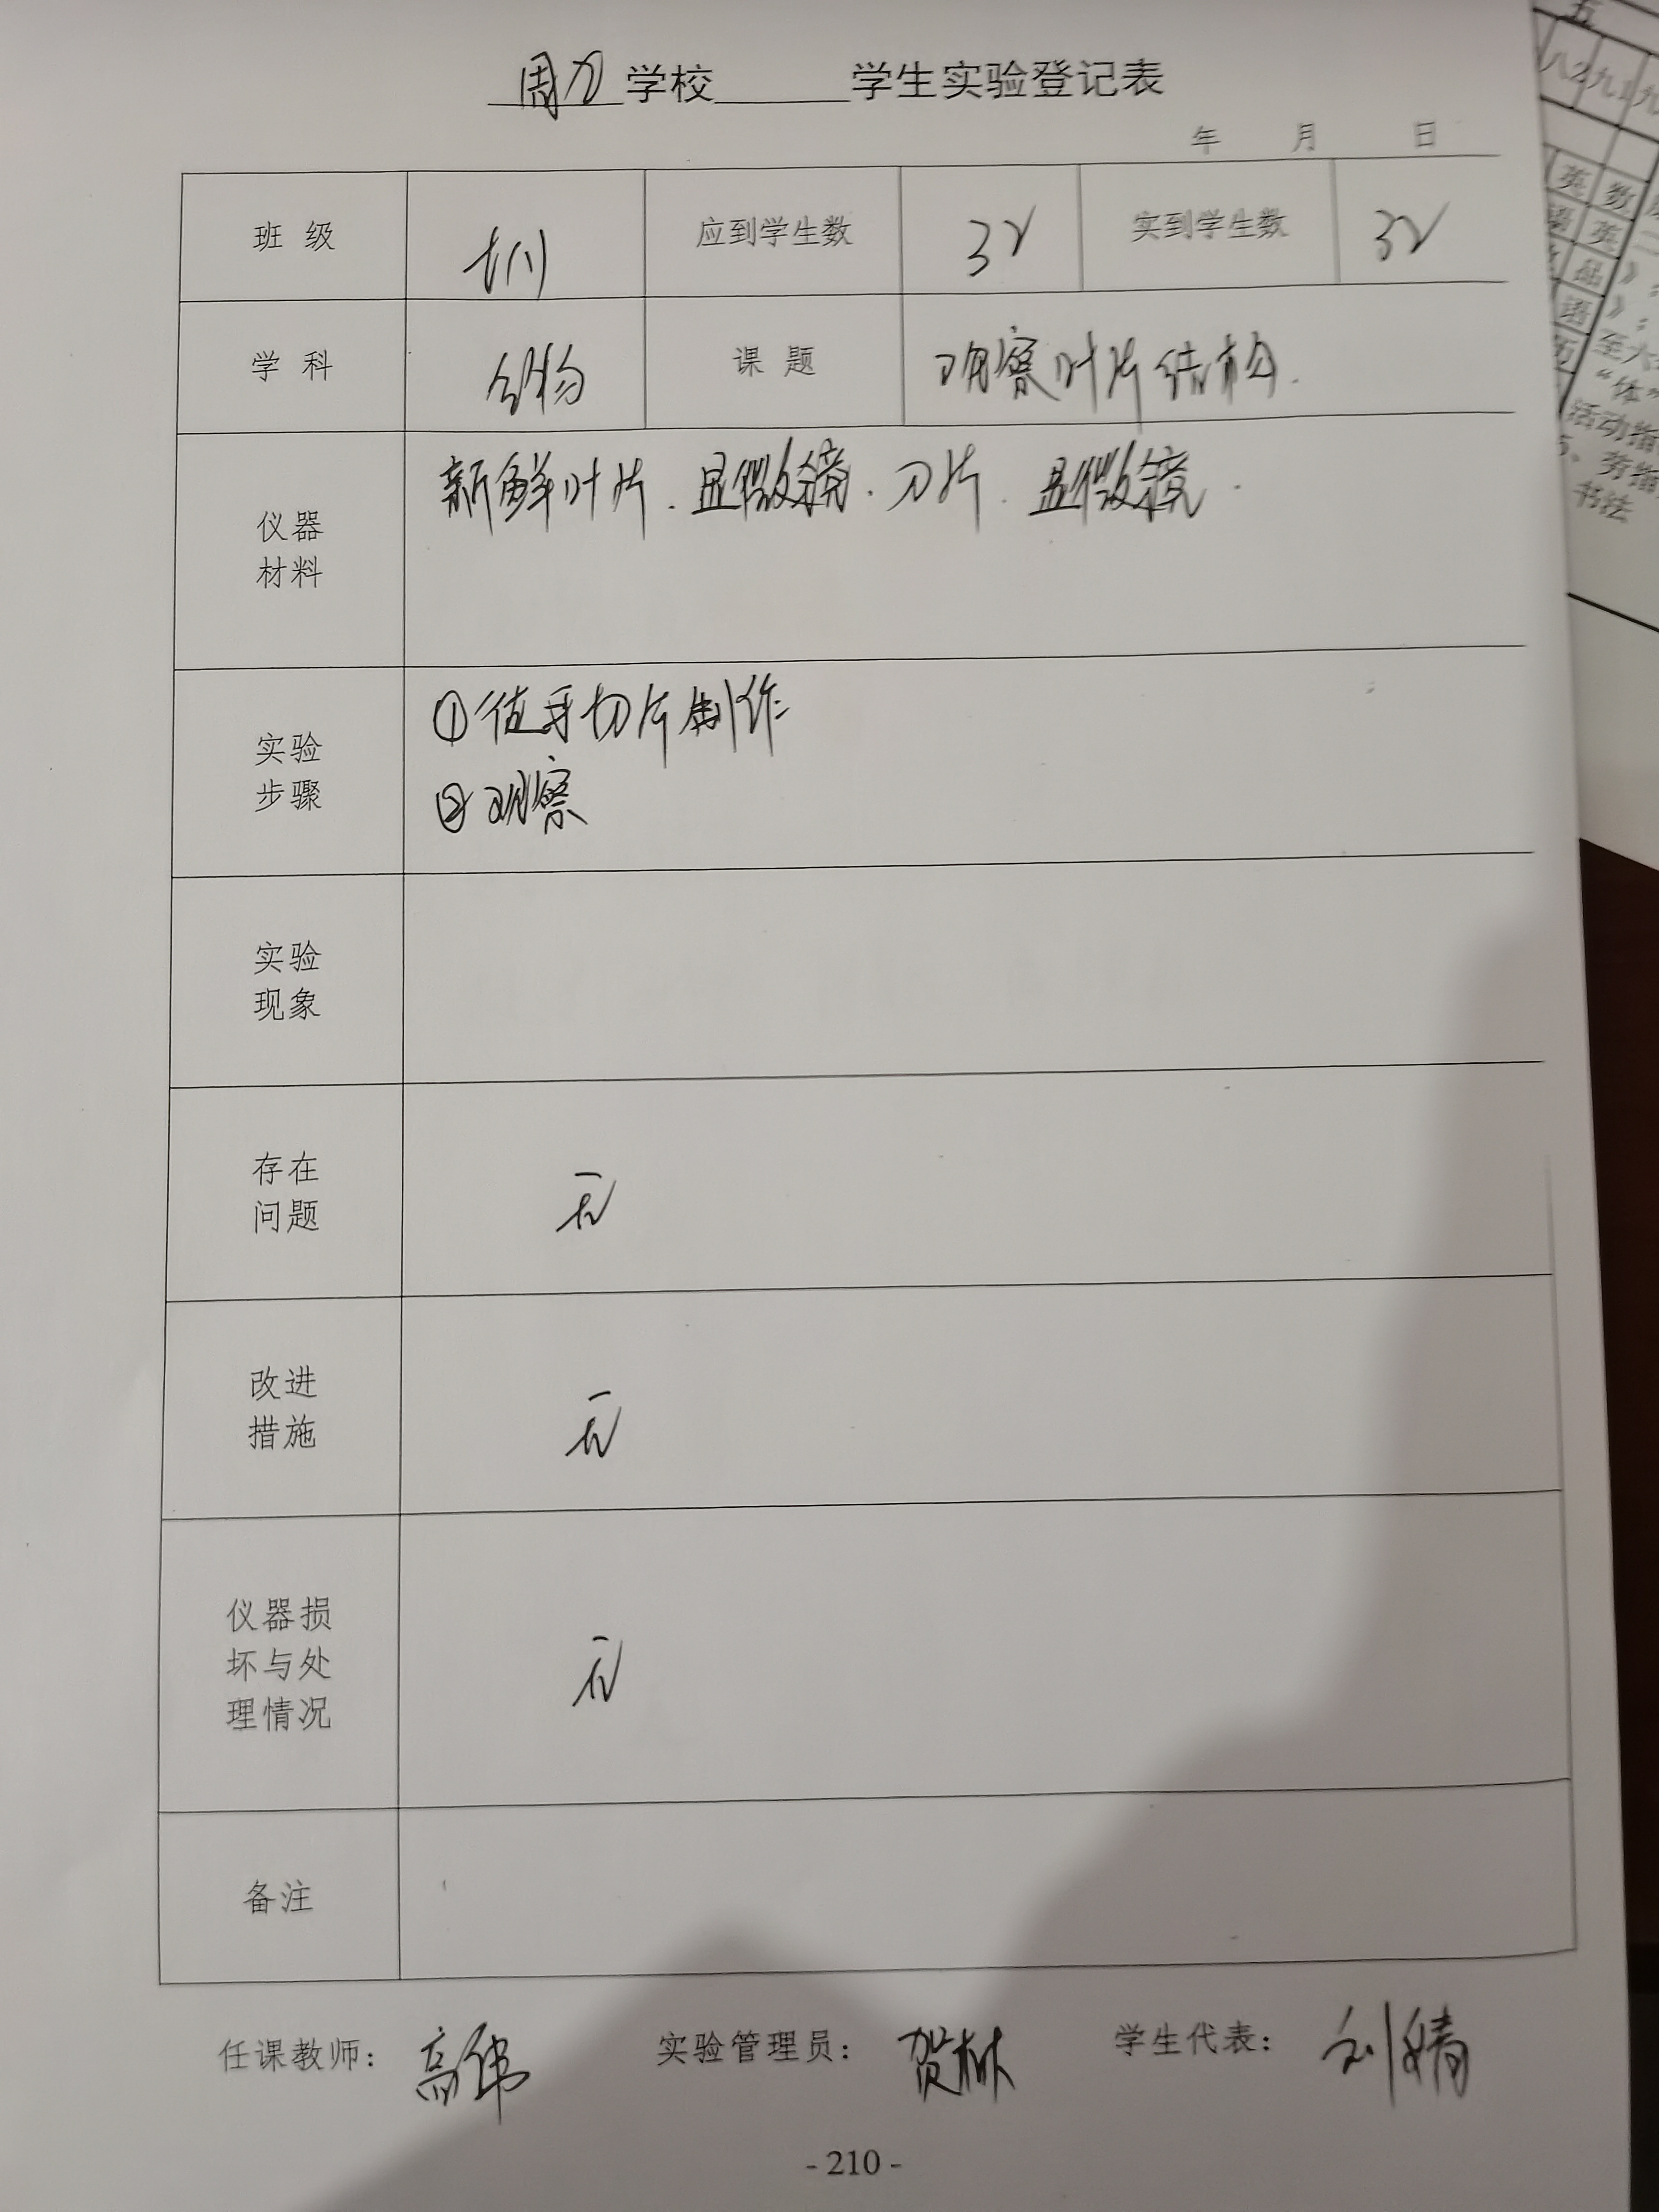 周力学校______学生实验登记表
年 月 日
班 级 七(1) 应到学生数 32 实到学生数 32
学 科 生物 课 题 观察叶片结构.
仪器
材料
新鲜叶片. 显微镜. 刀片. 显微镜.
实验
步骤
①徒手切片制作
②观察
实验
现象
存在
问题
无
改进
措施
无
仪器损
坏与处
理情况
无
备注
任课教师: 高伟 实验管理员: 贺林 学生代表: 刘婧
- 210 -
五
八2 九1 九
英 数
英
品
语
活动指
书法